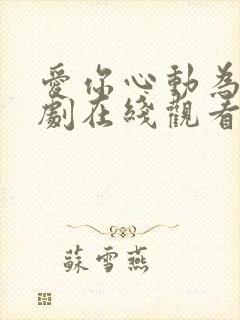 愛你心動為
劇在綫觀看
蘇雪燕